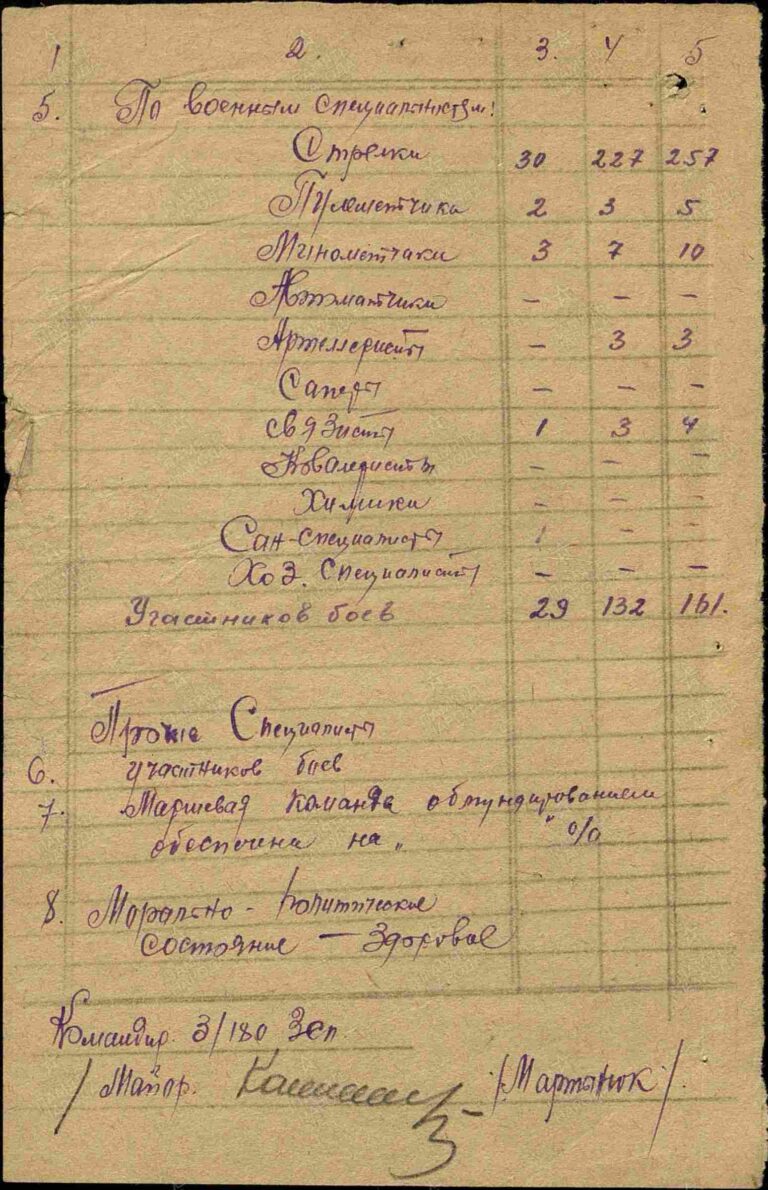 1 2. 3. 4 5
5. По военным специальностям:
Стрелки 30 227 257
Пулеметчика 2 3 5
Минометчики 3 7 10
Автоматчики – – –
Артеллеристы – 3 3
Саперы – – –
Связисты 1 3 4
Ковалеристы – – –
Химики – – –
Сан-специалисты 1 – –
Хоз. специалисты – – –
Участников боев 29 132 161.
Проче Специалисты
6. участников боев
7. Маршевая команда обмундированием
обеспечена на " " %
8. Морально-политическое
состояние – Здоровое
Командир 3/180 Зсп
/ Майор. /Мартынюк/.